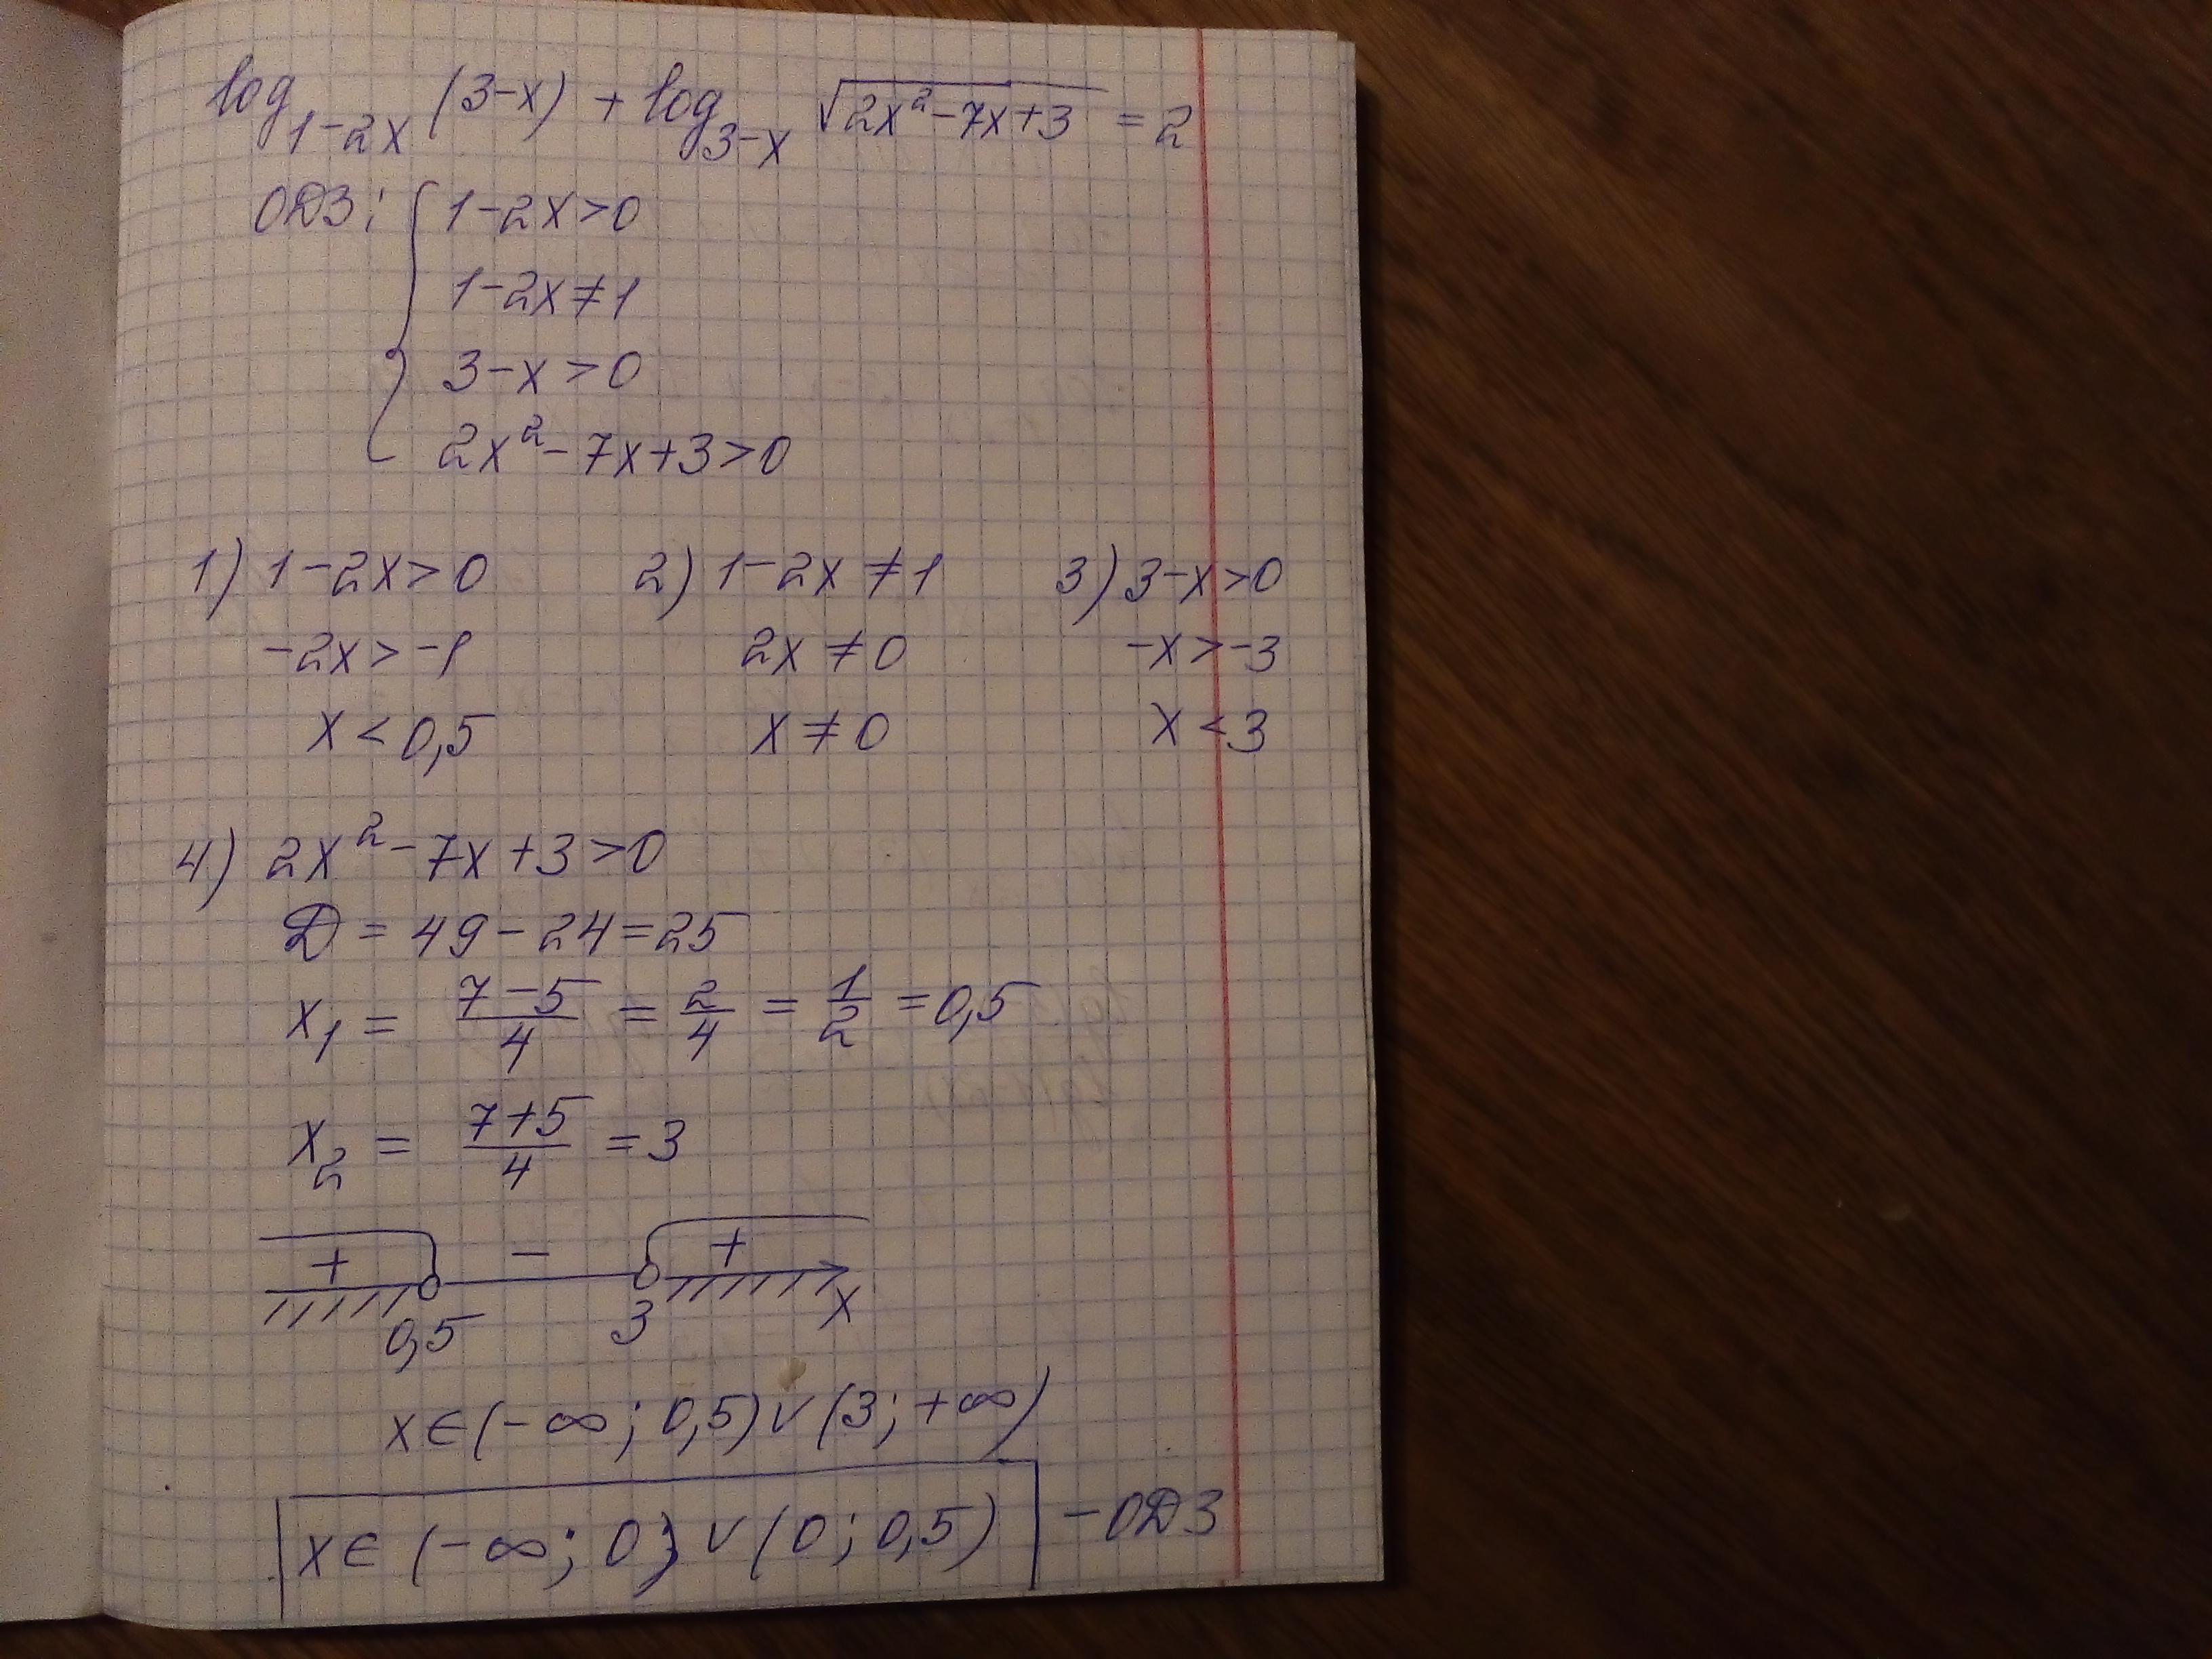 log₁₋₂ₓ (3-x) + log₃₋ₓ √(2x²-7x+3) = 2
ОДЗ: { 1-2x>0
1-2x≠1
3-x>0
2x²-7x+3>0
1) 1-2x>0 2) 1-2x≠1 3) 3-x>0
-2x>-1 2x≠0 -x>-3
x<0,5 x≠0 x<3
4) 2x²-7x+3>0
Д = 49-24=25
x₁ = (7-5)/4 = 2/4 = 1/2 = 0,5
x₂ = (7+5)/4 = 3
+ - +
0,5 3 x
x∈(-∞; 0,5)∨(3; +∞)
x∈(-∞; 0)∨(0; 0,5) - ОДЗ